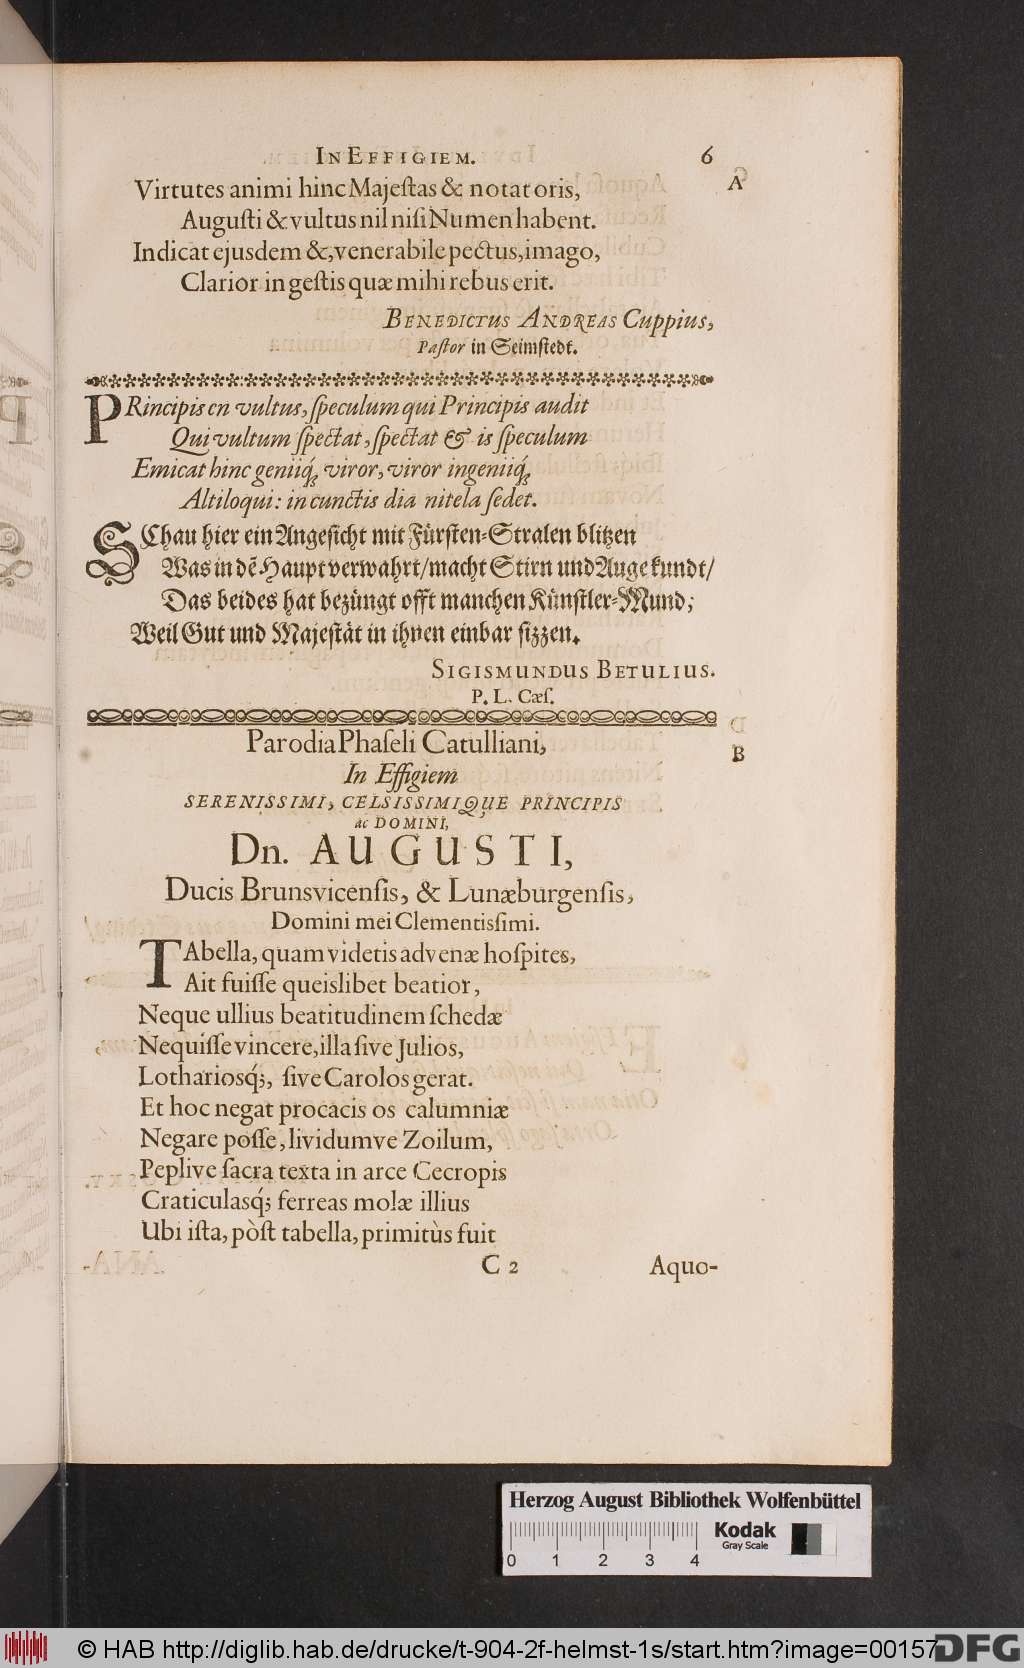 IN EFFIGIEM. 6
Virtutes animi hinc Majeſtas & notat oris, A
Auguſti & vultus nil niſi Numen habent.
Indicat ejusdem &, venerabile pectus, imago,
Clarior in geſtis quæ mihi rebus erit.
BENEDICTUS ANDREAS Cuppius,
Paſtor in Seimſtedt.
PRincipis en vultus, ſpeculum qui Principis audit
Qui vultum ſpectat, ſpectat & is ſpeculum
Emicat hinc geniiq́; viror, viror ingeniiq́;
Altiloqui: in cunctis dia nitela ſedet.
SChau hier ein Angeſicht mit Fürſten-Stralen blitzen
Was in dẽ Haupt verwahrt/ macht Stirn und Auge kundt/
Das beides hat bezüngt offt manchen Künſtler-Mund;
Weil Gut und Majeſtät in ihnen einbar ſizzen.
SIGISMUNDUS BETULIUS.
P. L. Cæſ.
Parodia Phaſeli Catulliani, B
In Effigiem
SERENISSIMI, CELSISSIMIQUE PRINCIPIS
ac DOMINI,
Dn. AUGUSTI,
Ducis Brunsvicenſis, & Lunæburgenſis,
Domini mei Clementisſimi.
TAbella, quam videtis advenæ hoſpites,
Ait fuiſſe queislibet beatior,
Neque ullius beatitudinem ſchedæ
Nequiſſe vincere, illa ſive Julios,
Lothariosq́;, ſive Carolos gerat.
Et hoc negat procacis os calumniæ
Negare poſſe, lividumve Zoilum,
Peplive ſacra texta in arce Cecropis
Craticulasq́; ferreas molæ illius
Ubi iſta, pòſt tabella, primitùs fuit
C 2 Aquo-
Herzog August Bibliothek Wolfenbüttel
Kodak
Gray Scale
0 1 2 3 4
© HAB http://diglib.hab.de/drucke/t-904-2f-helmst-1s/start.htm?image=00157
DFG